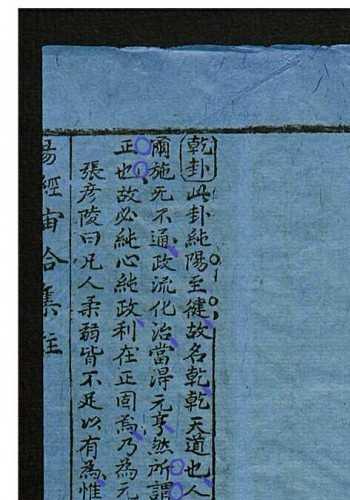 乾卦此卦純陽至徤故名乾乾天道也人
爾施无不通政流化治當得元亨然所謂
正也故必純心純政利在正固焉乃為元
張彥陵曰凡人柔弱皆不足以有為惟
易經宙合集註